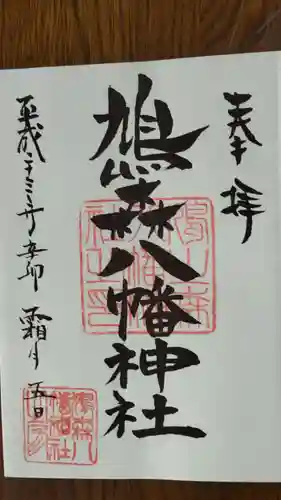 奉拝
鳩森八幡神社
平成二十三年辛卯 霜月五日